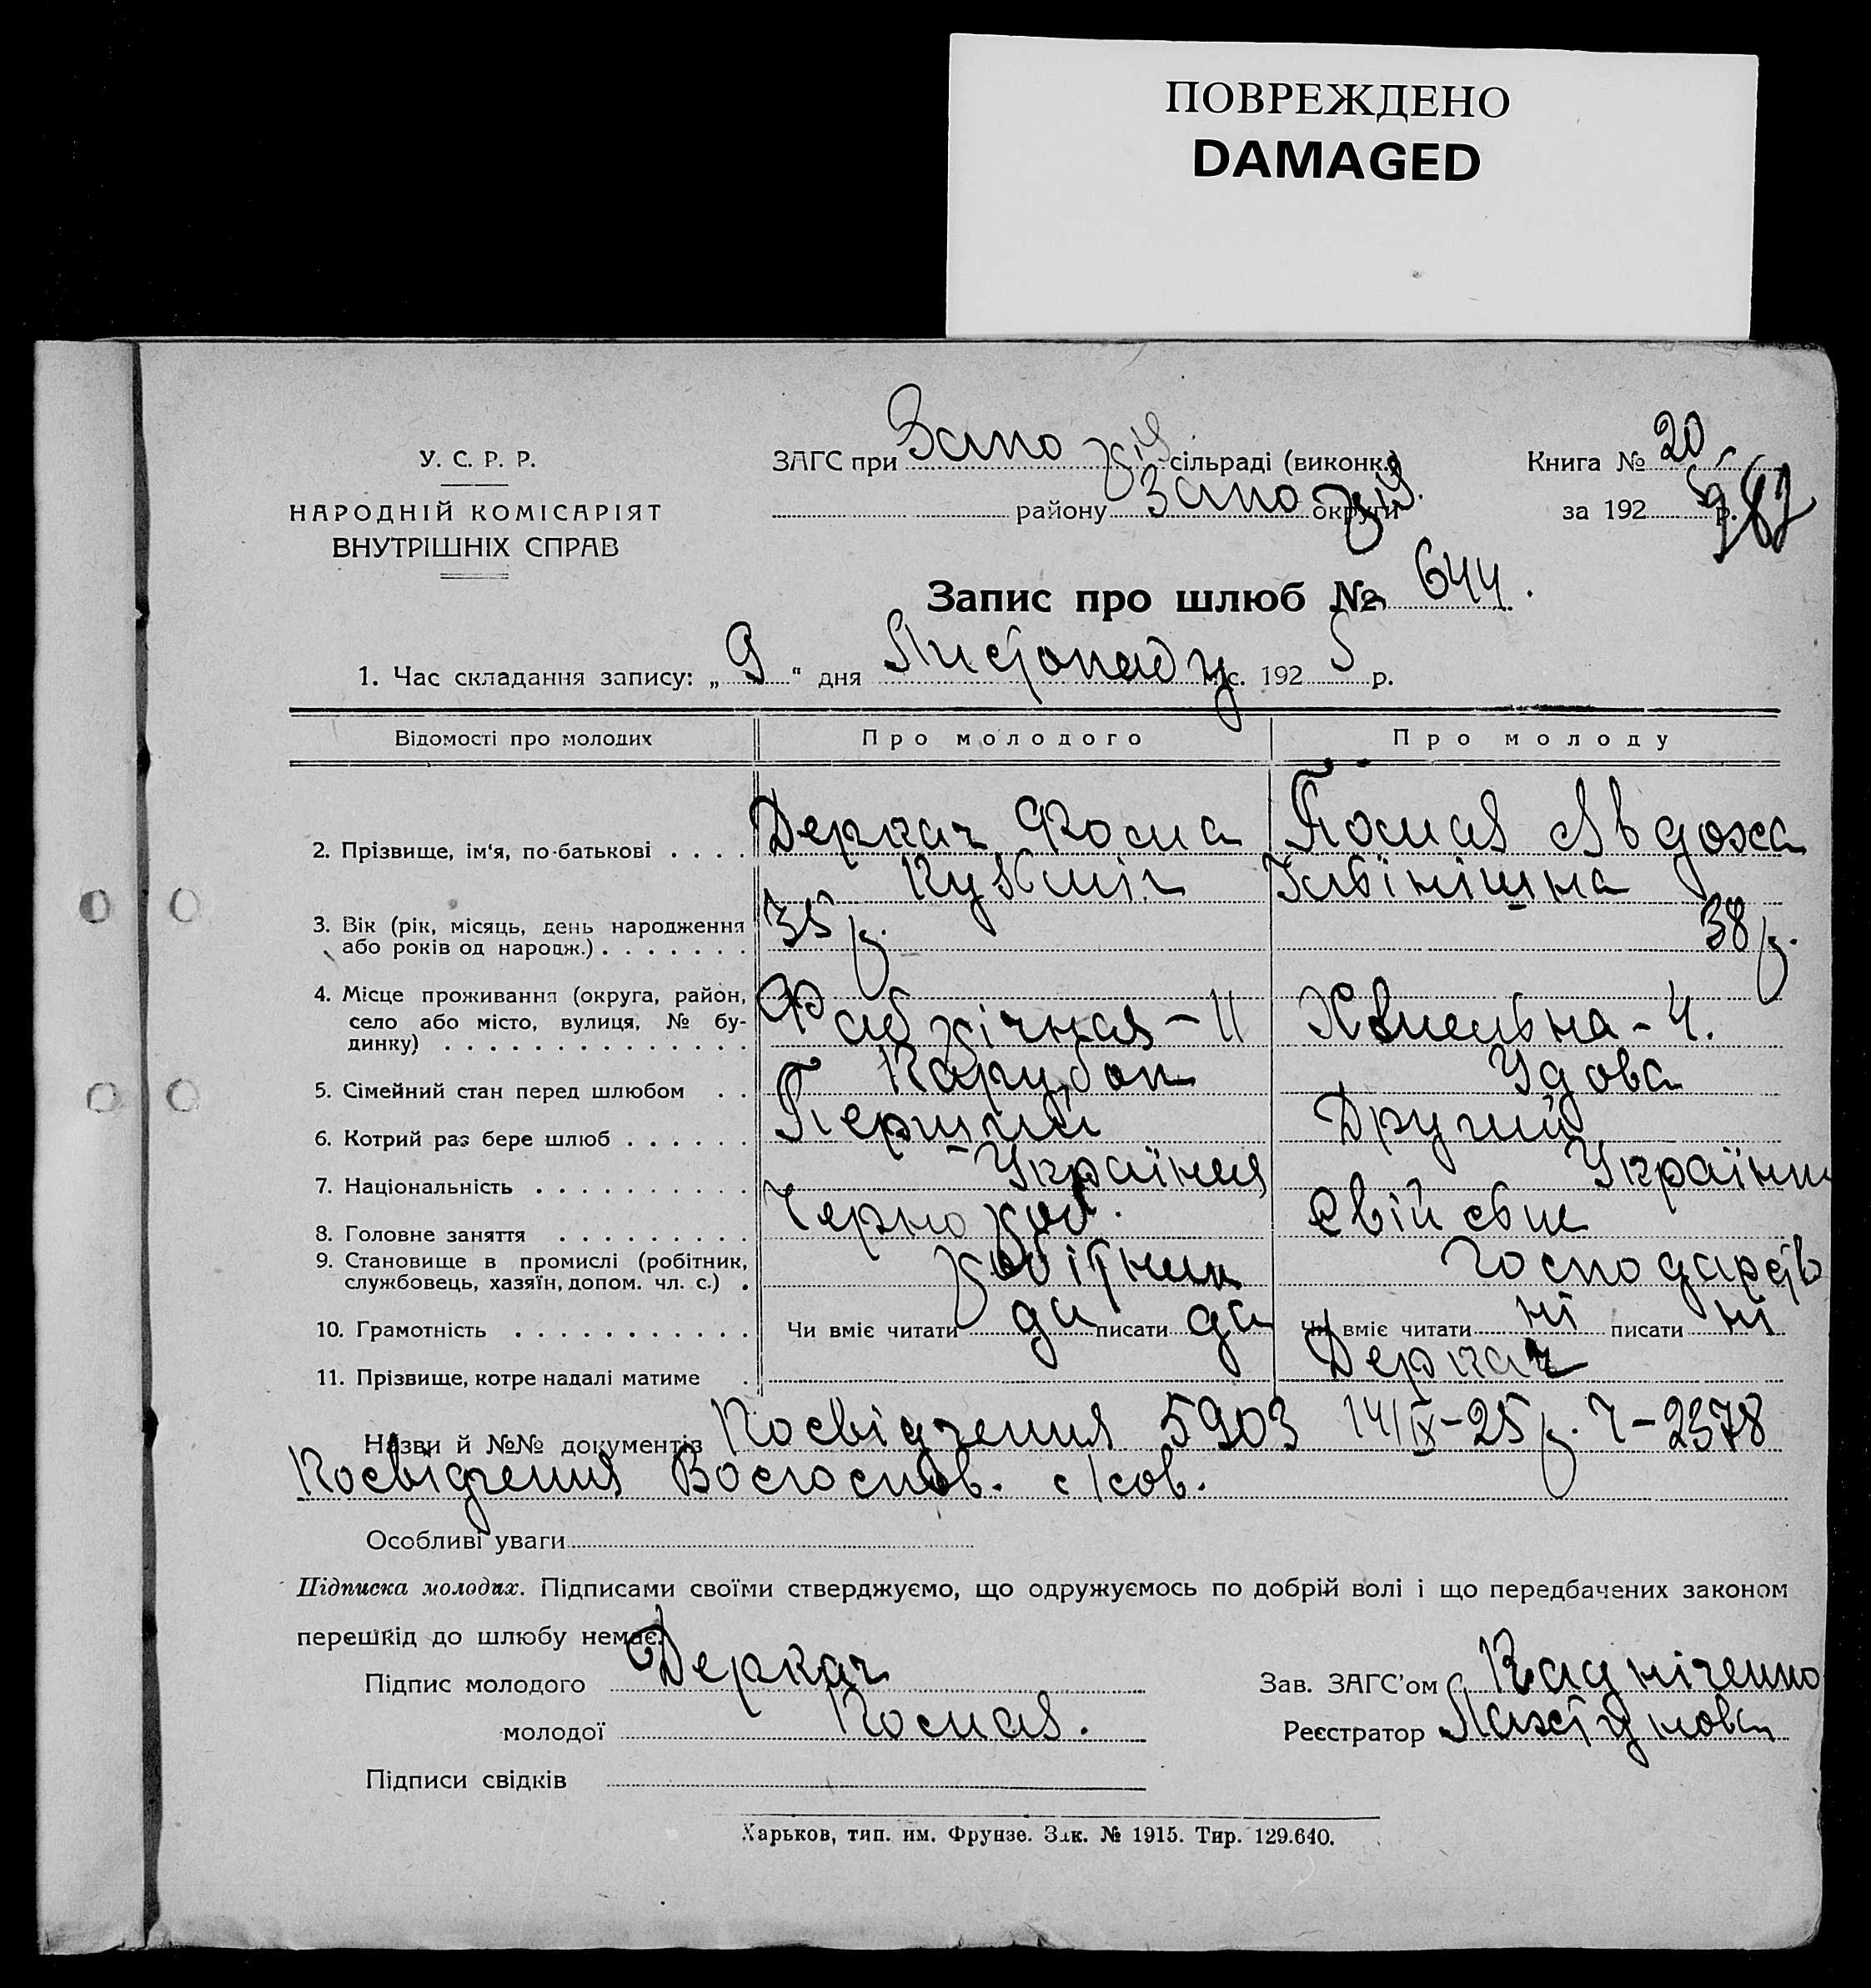 ПОВРЕЖДЕНО
DAMAGED
У. С. Р. Р.
НАРОДНІЙ КОМІСАРІЯТ
ВНУТРІШНІХ СПРАВ
ЗАГС при Запоріз сільраді (виконк.)
району Запоріз округи
Книга № 20
за 1925 р. 82
Запис про шлюб № 644.
1. Час складання запису: „9“ дня Листопаду міс. 1925 р.
Відомості про молодих Про молодого Про молоду
2. Прізвище, ім'я, по-батькові . . . . Деркач Фома Авдоха
Кузьміч
3. Вік (рік, місяць, день народження
або років од народж.) . . . . . . . 35 р. 38 р.
4. Місце проживання (округа, район,
село або місто, вулиця, № бу-
динку) . . . . . . . . . . . . . . Фабрічная – 11 Хвильна - 4.
5. Сімейний стан перед шлюбом . . Парубок Удова
6. Котрий раз бере шлюб . . . . . . Перший Другий
7. Національність . . . . . . . . . .
8. Головне заняття . . . . . . . . . Чернороб. Свійське
9. Становище в промислі (робітник,
службовець, хазяїн, допом. чл. с.) . робітник господарств
10. Грамотність . . . . . . . . . . . Чи вміє читати да писати да Чи вміє читати ні писати ні
11. Прізвище, котре надалі матиме . Деркач
Назви й №№ документів Посвідчення 5903 14/IX-25 р. Ч-2378
Посвідчення
Особливі уваги
Підписка молодих. Підписами своїми стверджуємо, що одружуємось по добрій волі і що передбачених законом
перешкід до шлюбу немає.
Підпис молодого Деркач
Зав. ЗАГС'ом
молодої
Реєстратор
Підписи свідків
Харьков, тип. им. Фрунзе. Зак. № 1915. Тир. 129.640.